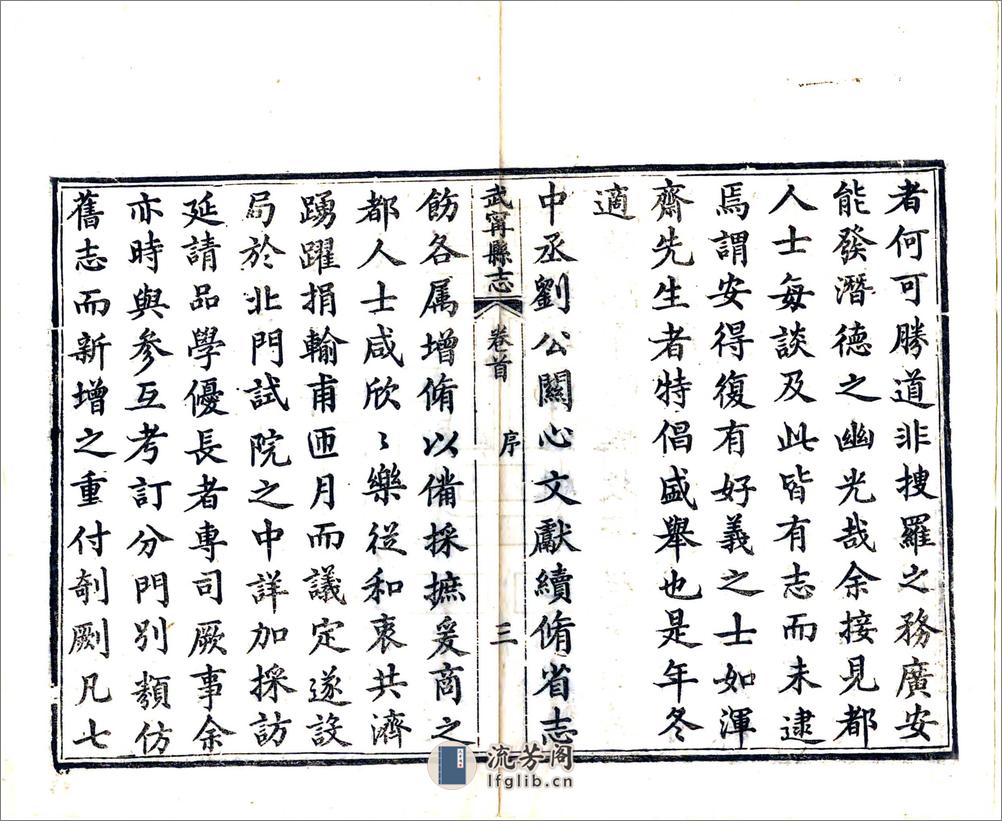 者何可勝道非搜羅之務廣安
能發潛德之幽光哉余接見都
人士每談及此皆有志而未逮
焉謂安得復有好義之士如渾
齋先生者特倡盛舉也是年冬
適
中丞劉公關心文獻續脩省志
武寧縣志 卷首 序 三
飭各属增脩以備採摭爰商之
都人士咸欣〻樂從和衷共濟
踴躍捐輸甫匝月而議定遂設
局於北門試院之中詳加採訪
延請品學優長者專司厥事余
亦時與參互考訂分門別類仿
舊志而新增之重付剞劂凡七
流芳阁
lfglib.cn